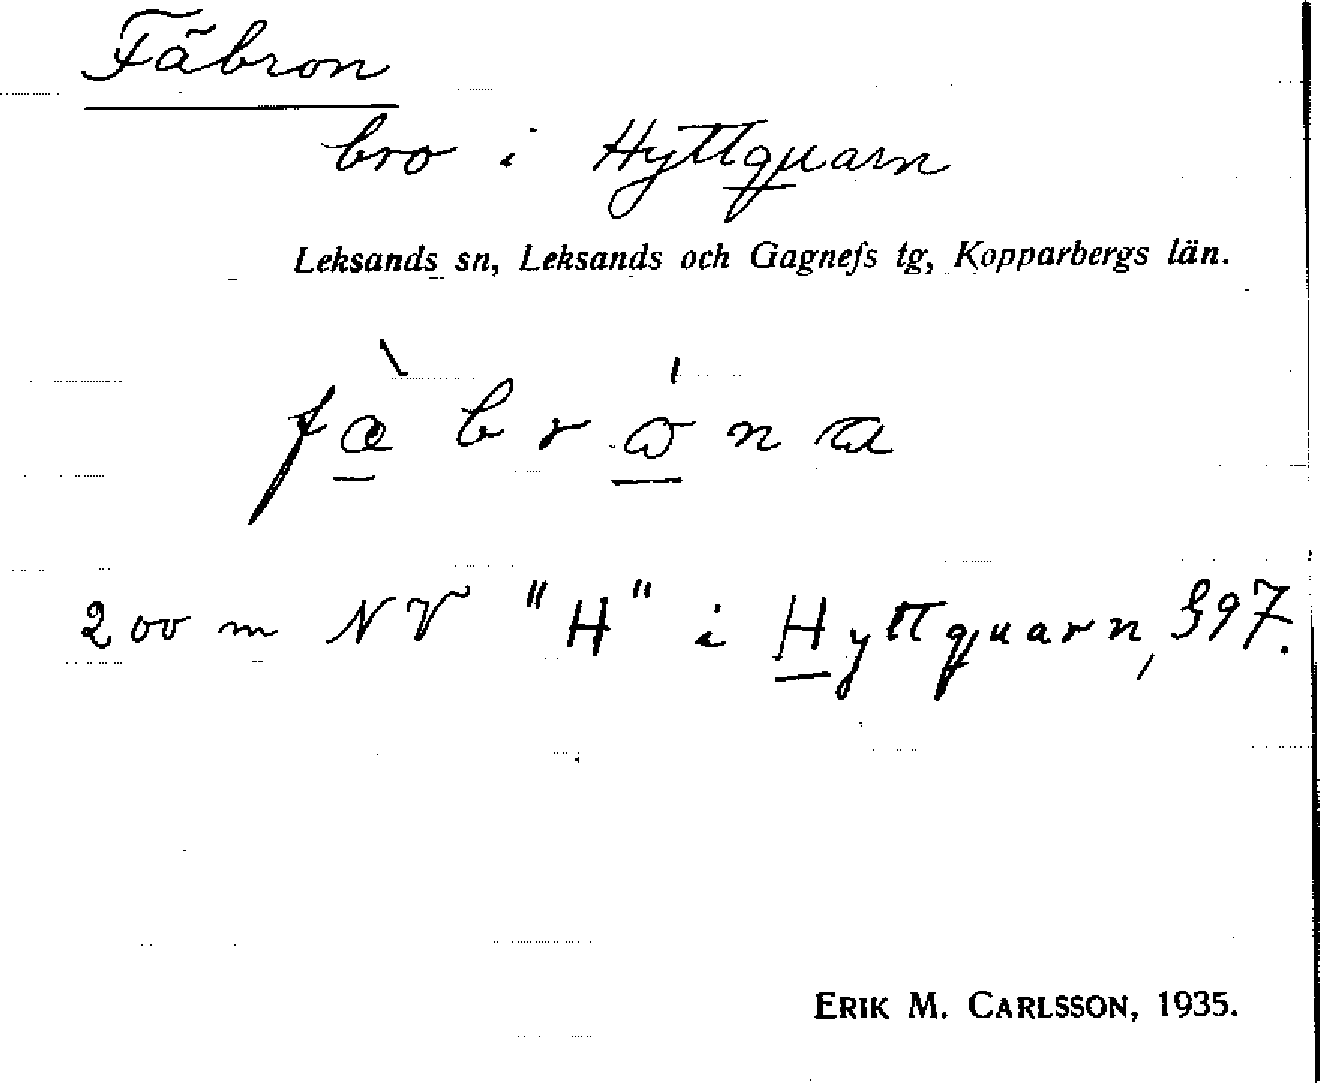 Fäbron
bro i Hyttquarn
Leksands sn, Leksands och Gagnefs tg, Kopparbergs län.
fæ̀brω̍na
200 m NV "H" i Hyttquarn, G97.
ERIK M. CARLSSON, 1935.